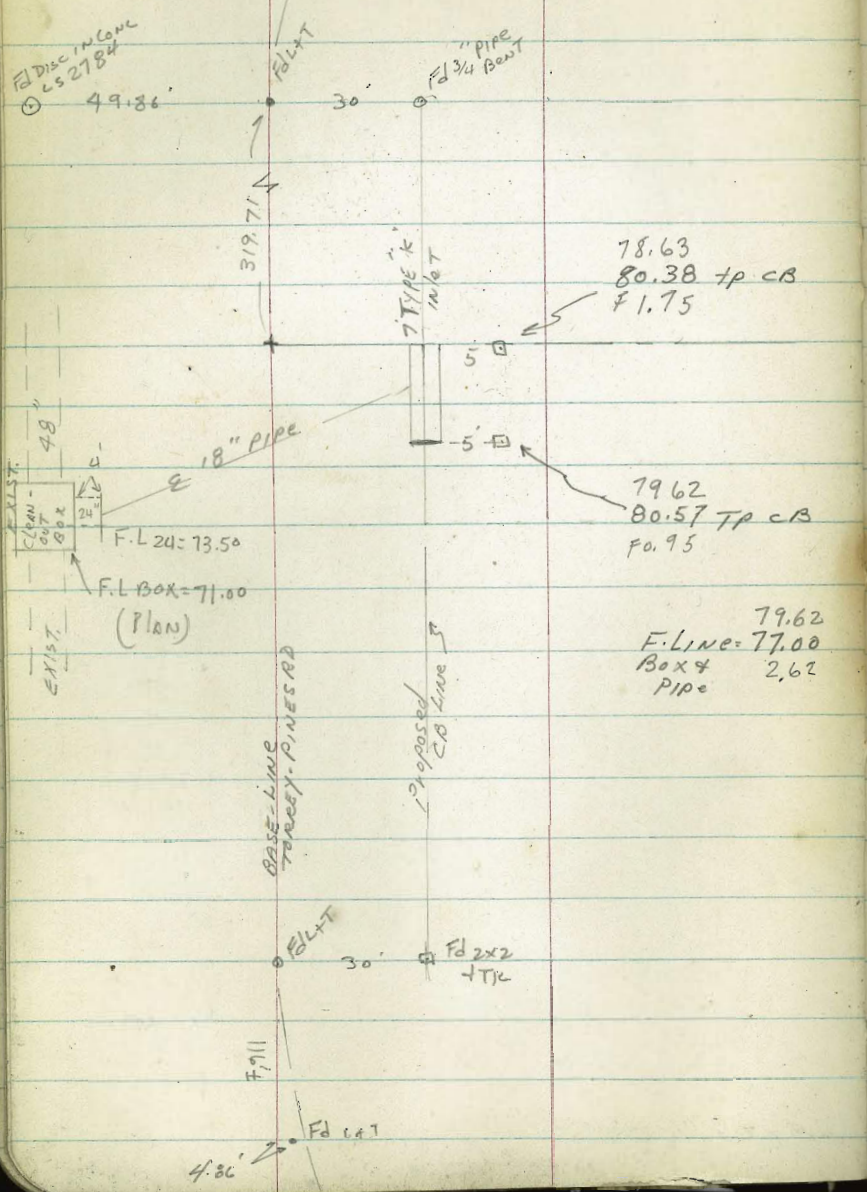 Fd DISC IN CONC
LS 2784
49.86
Fd L+T
30
Fd 3/4" PIPE
BENT
319.71
7' TYPE "K"
INLET
78.63
80.38 TP CB
F 1.75
5'
5'
79.62
80.57 TP CB
F 0.95
18" PIPE
EXIST.
48"
CLEAN-
OUT
BOX
4'
24"
F.L 24 = 73.50
F.L BOX = 71.00
(PLAN)
EXIST.
79.62
F. LINE = 77.00
BOX & 2.62
PIPE
BASE-LINE
TORREY-PINES RD
PROPOSED
CB LINE
Fd L+T
30'
Fd 2x2
+TK
Fd L+T
4.86'